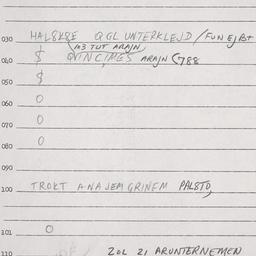 030 HAL8K8E QGL UNTERKLEJD / FUN EJ
103 TUT ARAJN
040 $ QVINCIMES ARAJN 788
050 $
060 O
070 O
080 O
090
100 TROKT ANAJEM GRINEM PALSTO,
101 O
110 ZOL ZI ARUNTERNEMEN